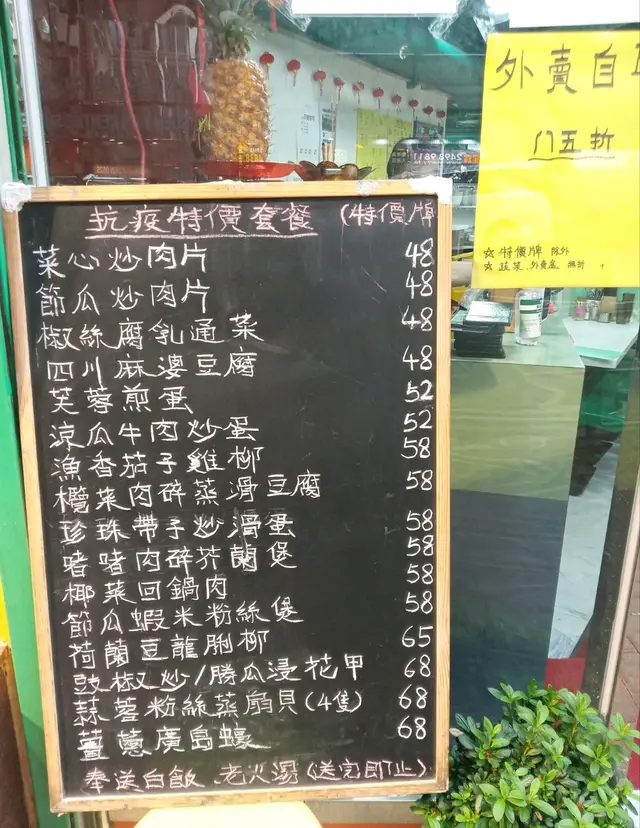 外賣自
八五折
☆特價牌 除外
☆蔬菜.外賣盒 無折
抗疫特價套餐 (特價牌
菜心炒肉片 48
節瓜炒肉片 48
椒絲腐乳通菜 48
四川麻婆豆腐 48
芙蓉煎蛋 52
涼瓜牛肉炒蛋 52
漁香茄子雞柳 58
欖菜肉碎蒸滑豆腐 58
珍珠帶子炒滑蛋 58
啫啫肉碎芥蘭煲 58
椰菜回鍋肉 58
節瓜蝦米粉絲煲 58
荷蘭豆龍脷柳 65
豉椒炒/勝瓜浸花甲 68
蒜蓉粉絲蒸扇貝(4隻) 68
薑蔥廣島蠔 68
奉送白飯 老火湯(送完即止)